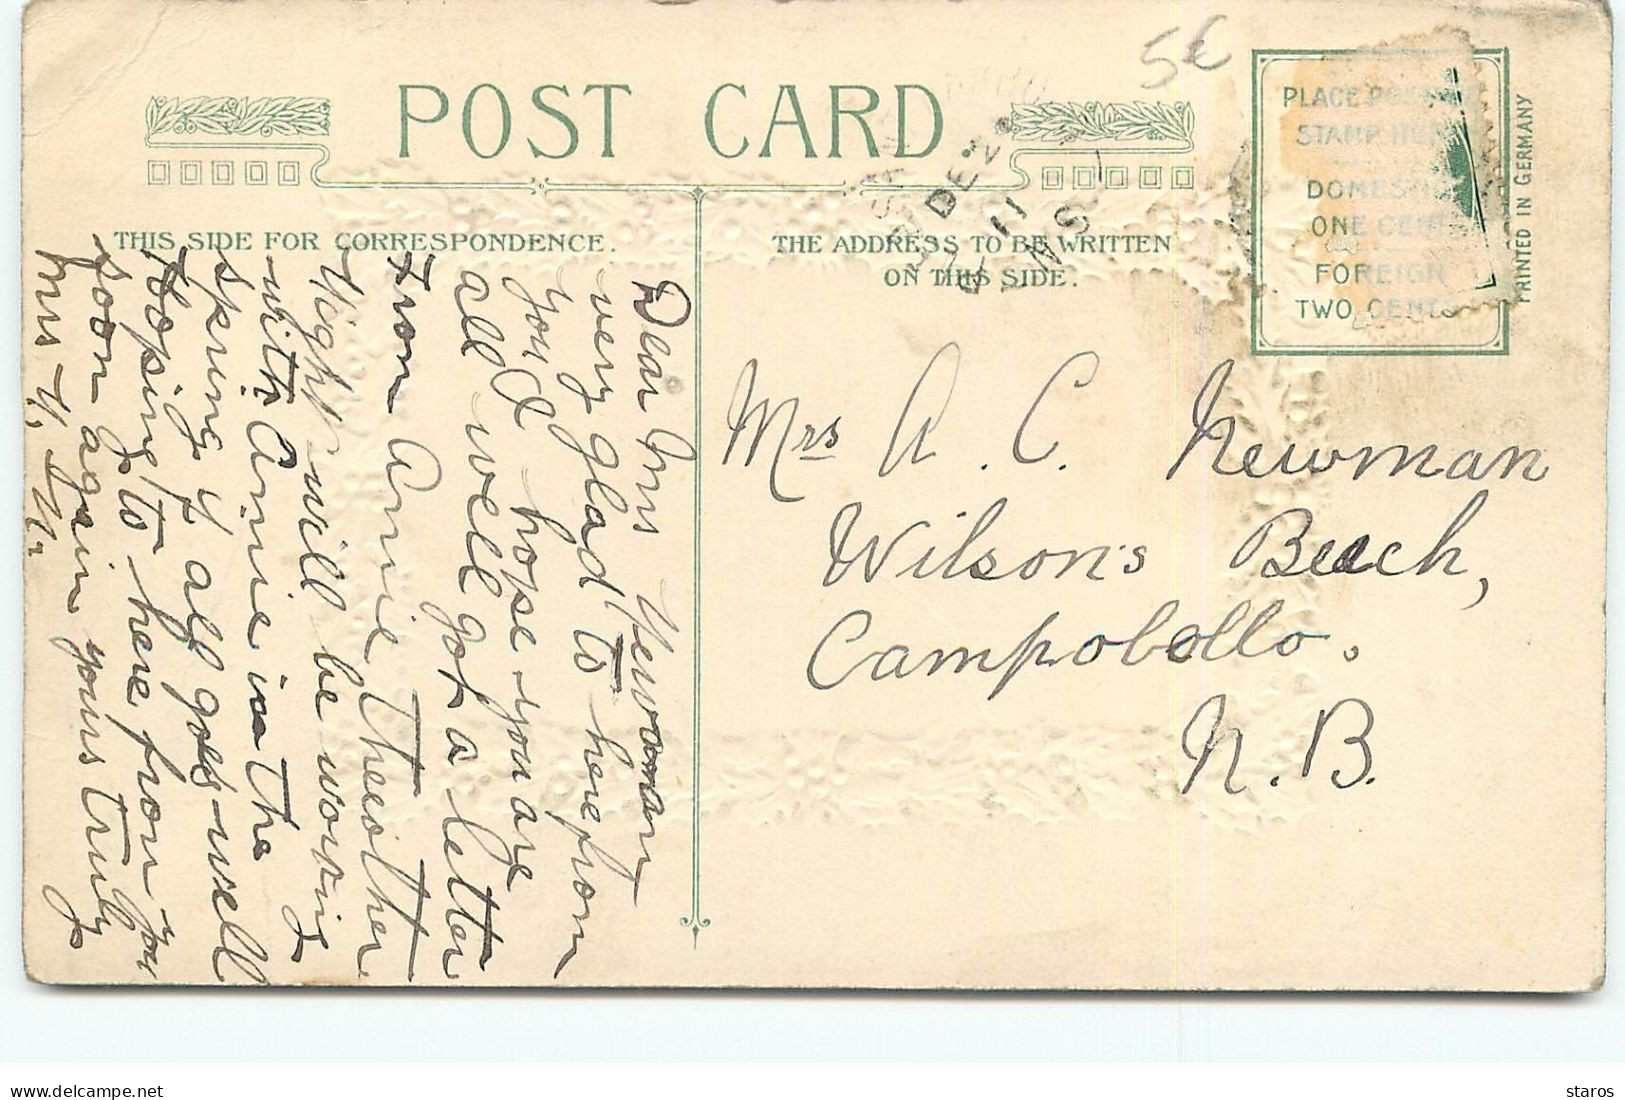 5€
POST CARD
THIS SIDE FOR CORRESPONDENCE.
THE ADDRESS TO BE WRITTEN
ON THIS SIDE.
PLACE
STAMP
DOMESTIC
ONE CENT
FOREIGN
TWO CENTS
PRINTED IN GERMANY
DE 2
11
N S
Dear Mrs Newoman
very glad to here from
you & hope you are
all well got a letter
from Annie the other
Night will be working
with Annie in the
spring if all goes well
Hoping to here from you
soon again yours truly
Mrs
Mrs A. C. Newman
Wilson's Beach,
Campobello.
N. B.
staros
delcampe.net